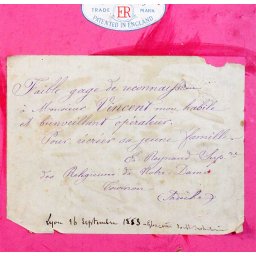 TRADE MARK
ER
PATENTED IN ENGLAND
Faible gage de reconnaissance
à Monsieur Vincent mon habile
et bienveillant opérateur.
Pour orner sa jeune famille
Raynaud Sup.re
des Religieuses de Notre-Dame
Tournon
Lyon 16 Septembre 1883